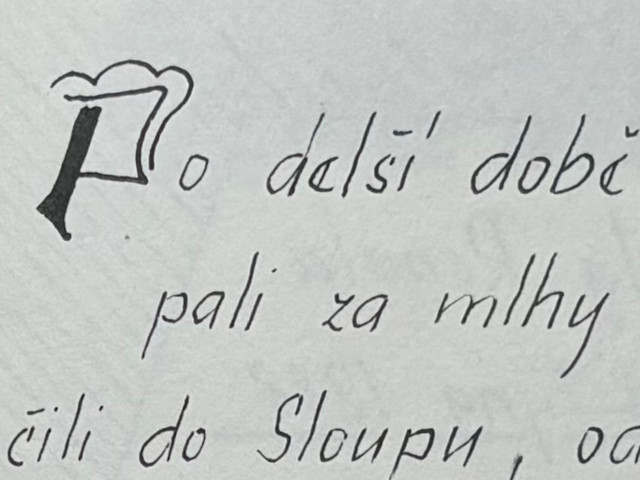 Po delší době
pali za mlhy
čili do Sloupu, od